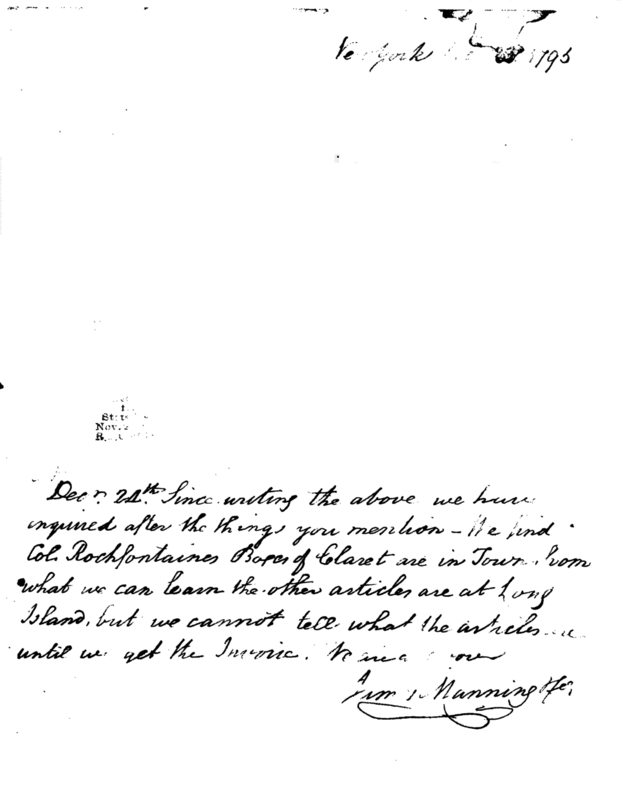 New York 1795
Decr. 24th. Since writing the above we have
inquired after the things you mention – We find
Col. Rochfontaines Boxes of Claret are in Town. From
what we can learn the other articles are at Long
Island, but we cannot tell what the articles are
until we get the Invoice. We are
Manning